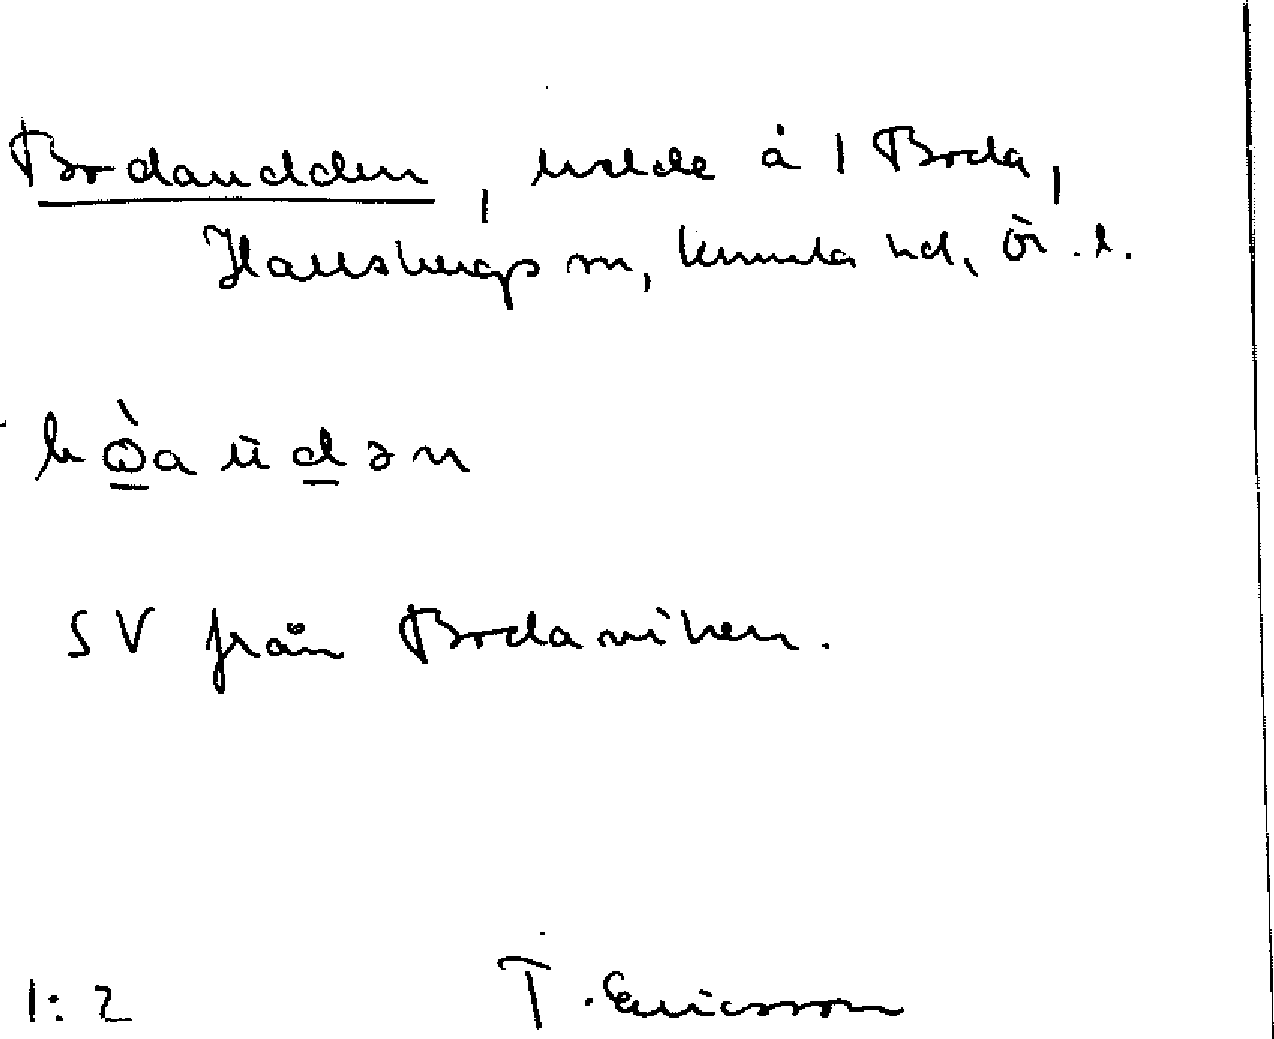 Bodaudden, udde å 1 Boda,
Hallsbergs sn, Kumla hd, Ör. l.
SV från Bodaviken.
1:2 T. Ericsson